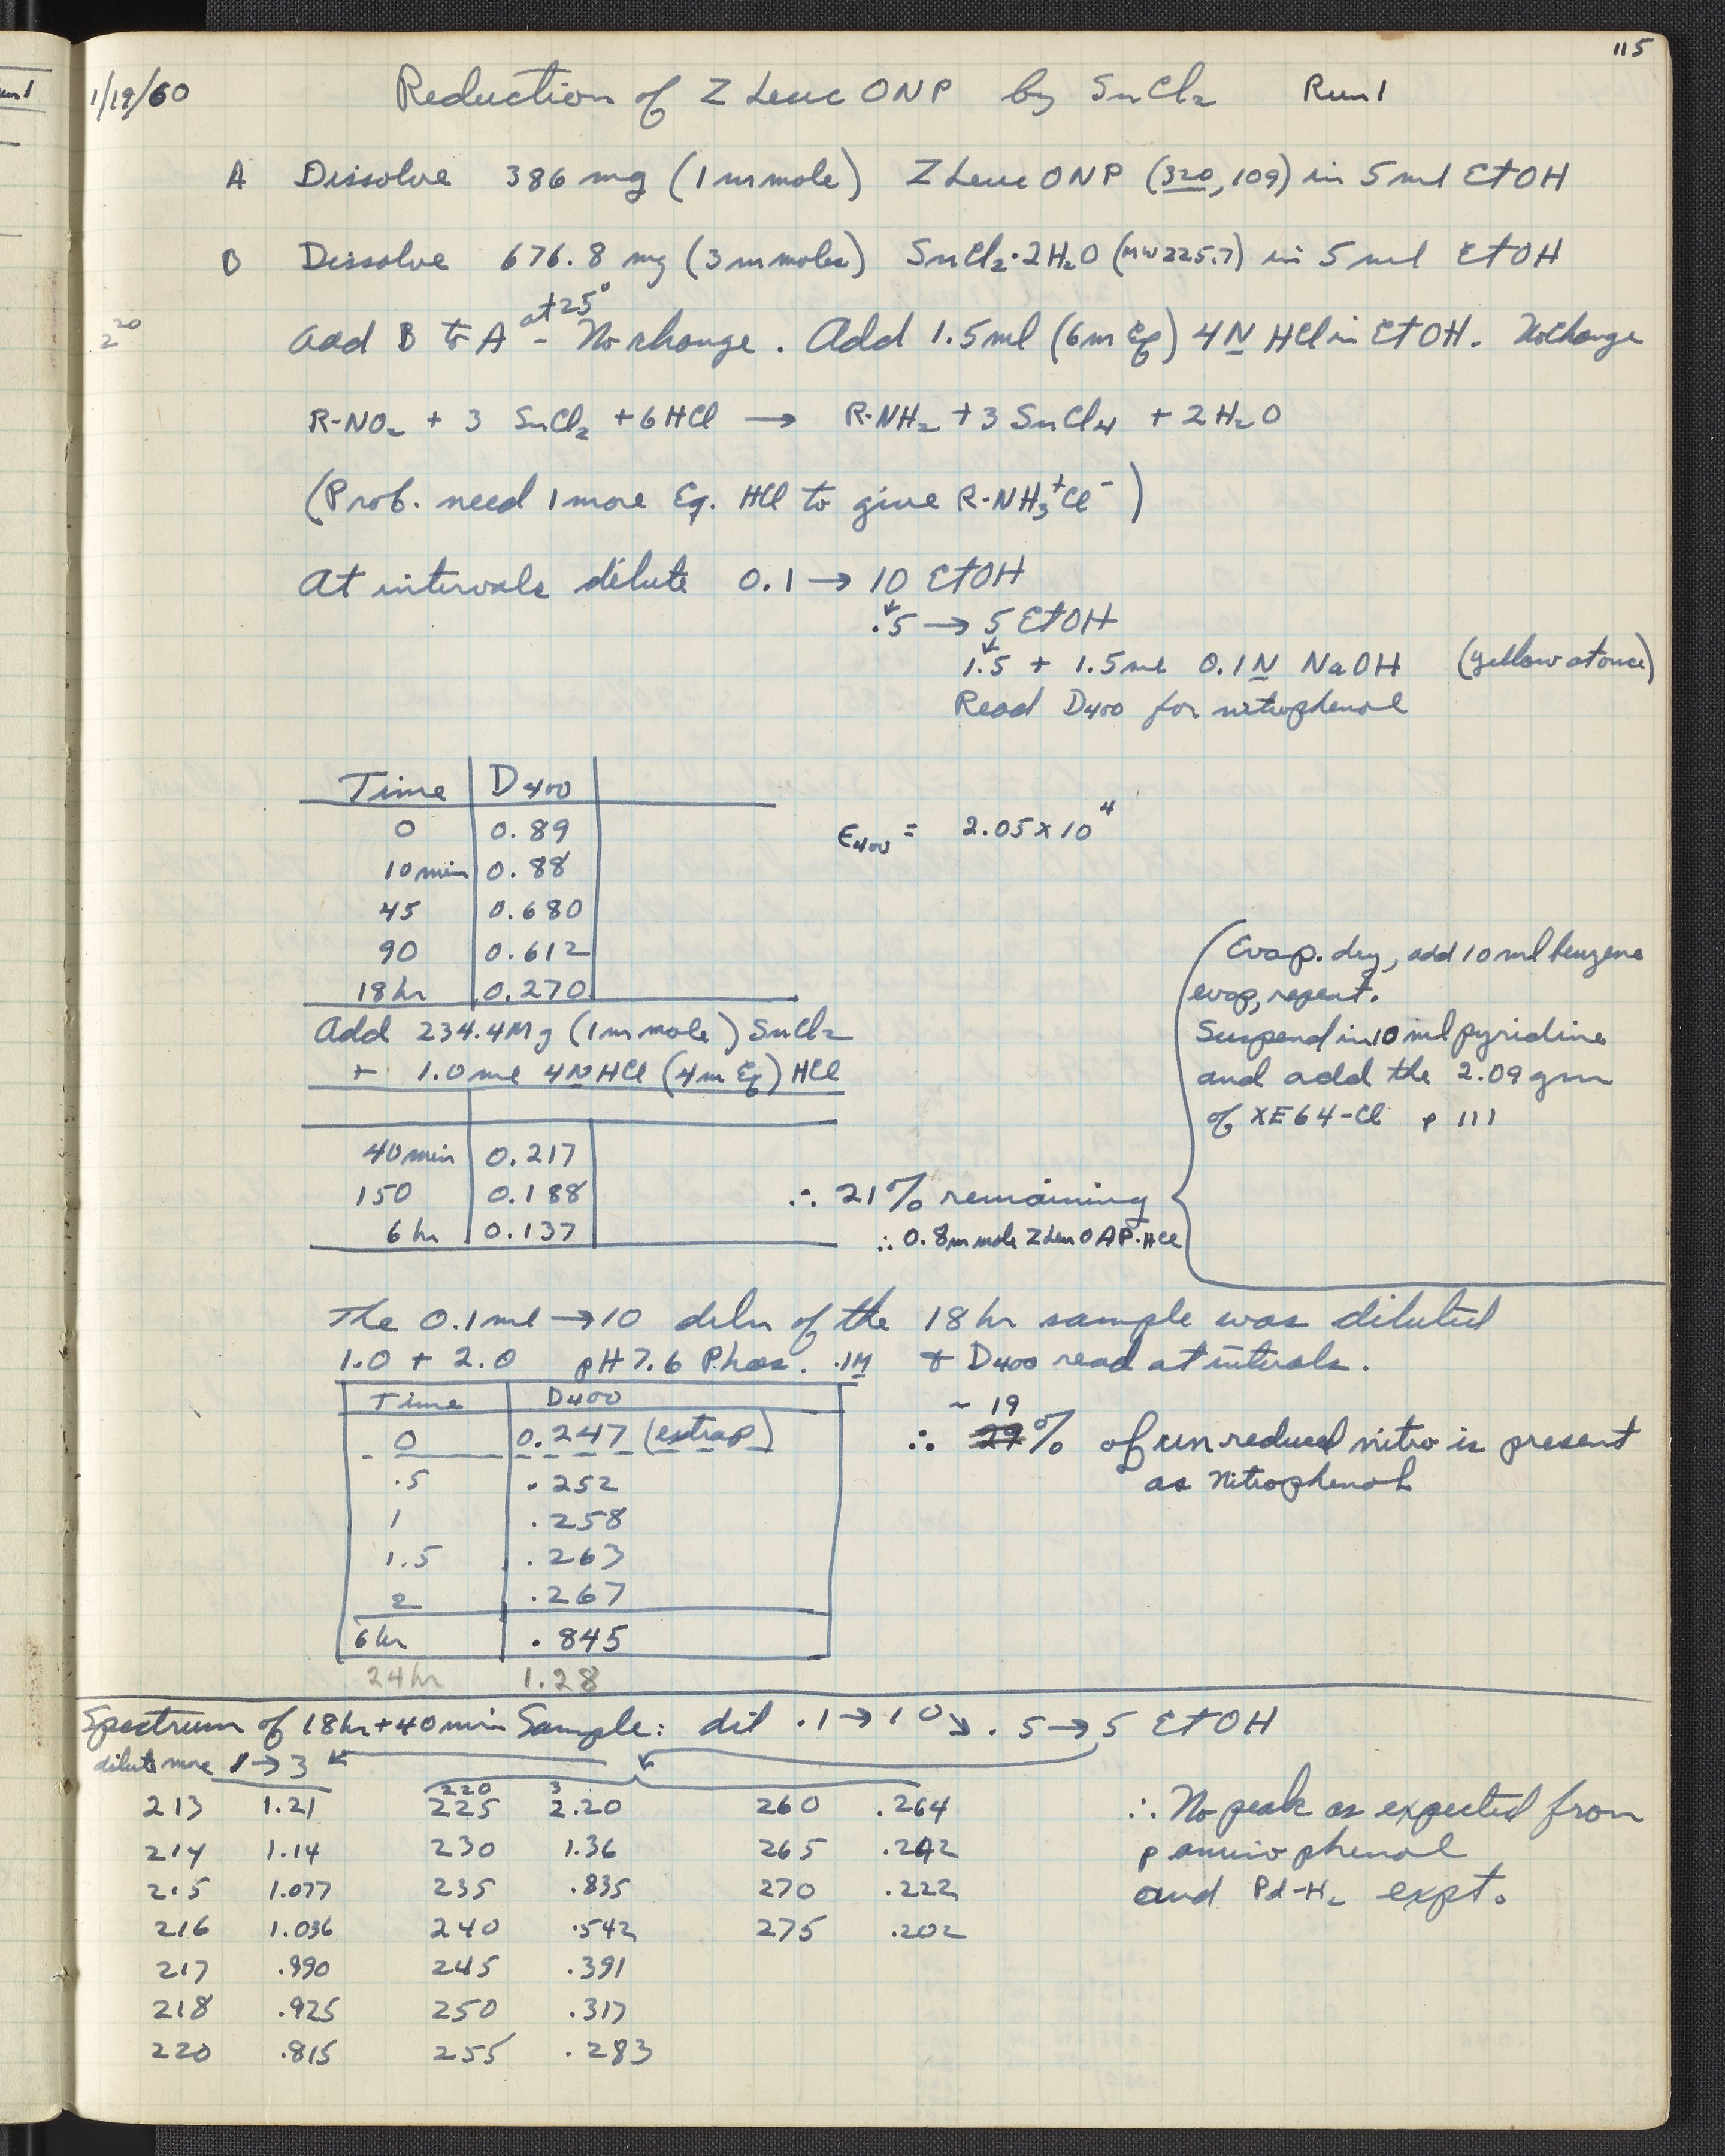 115
1/19/60 Reduction of Z Leuc ONP by SnCl2 Run 1
A Dissolve 386 mg (1 m mole) Z Leuc ONP (320, 109) in 5 ml EtOH
B Dissolve 676.8 mg (3 m moles) SnCl2·2H2O (MW 225.7) in 5 ml EtOH
2 20 add B to A at 25° - No change. Add 1.5 ml (6 m Eq) 4N HCl in EtOH. No Change
R-NO2 + 3 SnCl2 + 6 HCl → R-NH2 + 3 SnCl4 + 2 H2O
(Prob. need 1 more Eq. HCl to give R-NH3+Cl-)
At intervals dilute 0.1 → 10 EtOH
.5 → 5 EtOH
1.5 + 1.5 ml 0.1N NaOH (yellow at once)
Read D400 for nitrophenol
Time D400
0 0.89
ε400 = 2.05 x 10^4
10 min 0.88
45 0.680
90 0.612
18 hr 0.270
Add 234.4 Mg (1 m mole) SnCl2
+ 1.0 ml 4N HCl (4 m Eq) HCl
40 min 0.217
150 0.188
6 hr 0.137
∴ 21% remaining
∴ 0.8 m mole Z Leu OAP·HCl
(Evap. dry, add 10 ml benzene
evap, repeat.
Suspend in 10 ml pyridine
and add the 2.09 gm
of XE64-Cl p 111
The 0.1 ml → 10 diln of the 18 hr sample was diluted
1.0 + 2.0 pH 7.6 Phos. .1M & D400 read at intervals.
Time D400
0 0.247 (extrap)
.5 .252
1 .258
1.5 .263
2 .267
6 hr .845
24 hr 1.28
~ 19
∴ 29% of unreduced nitro is present
as Nitrophenol
Spectrum of 18 hr + 40 min Sample: dil .1 → 10 ↘ .5 → 5 EtOH
dilute more 1 → 3
220 3
213 1.21 225 2.20 260 .264
214 1.14 230 1.36 265 .242
215 1.077 235 .835 270 .222
216 1.036 240 .542 275 .202
217 .990 245 .391
218 .925 250 .317
220 .815 255 .283
∴ No peak as expected from
p amino phenol
and Pd-H2 expt.